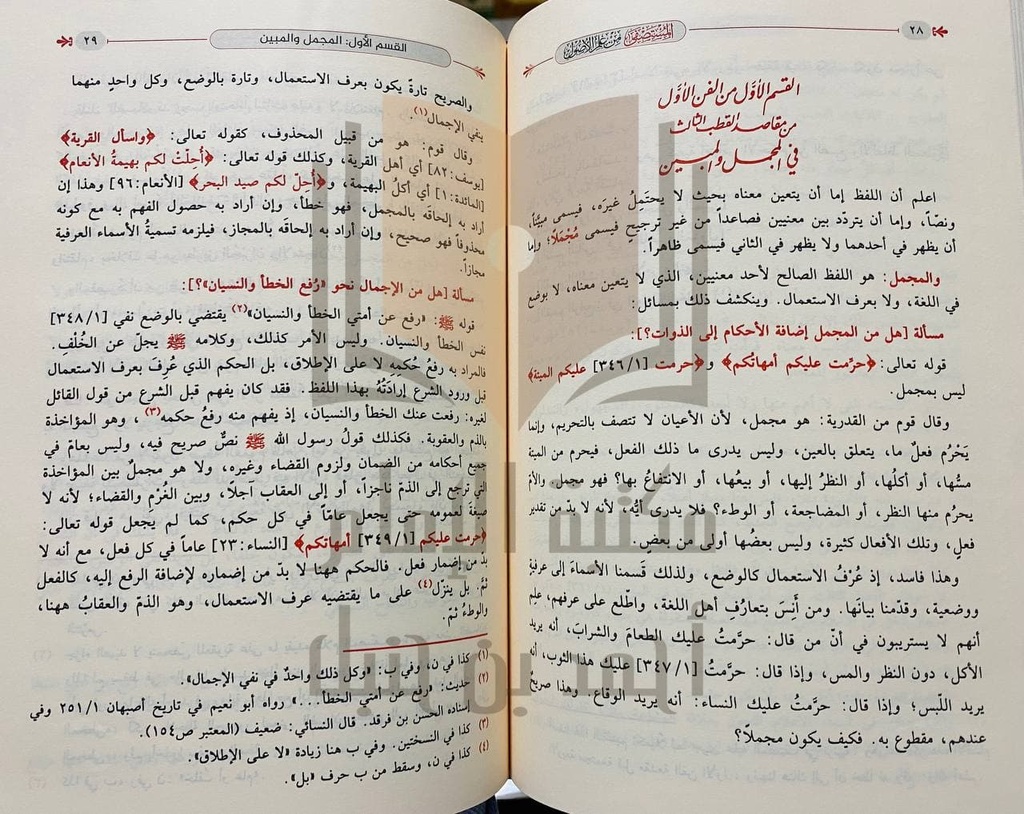 ٢٨
المستصفى من علم الأصول
القسم الأوّل من الفن الأوّل
من مقاصد القطب الثالث
في المجمل والمبين
اعلم أن اللفظ إما أن يتعين معناه بحيث لا يحتَمِلُ غيرَه، فيسمى مبيَّناً،
ونصّاً، وإما أن يتردّد بين معنيين فصاعداً من غير ترجيح فيسمى مُجْمَلاً؛ وإما
أن يظهر في أحدهما ولا يظهر في الثاني فيسمى ظاهراً.
والمجمل: هو اللفظ الصالح لأحد معنيين، الذي لا يتعين معناه، لا بوضع
في اللغة، ولا بعرف الاستعمال. وينكشف ذلك بمسائل:
مسألة [هل من المجمل إضافة الأحكام إلى الذوات؟]:
قوله تعالى: ﴿حرِّمت عليكم أمهاتكم﴾ و﴿حرمت [٣٤٦/١] عليكم الميتة﴾
ليس بمجمل.
وقال قوم من القدرية: هو مجمل، لأن الأعيان لا تتصف بالتحريم، وإنما
يَحْرُم فعلٌ ما، يتعلق بالعين، وليس يدرى ما ذلك الفعل، فيحرم من الميتة
مسُّها، أو أكلُها، أو النظرُ إليها، أو بيعُها، أو الانتفاعُ بها؟ فهو مجمل. والأمّ
يحرُم منها النظر، أو المضاجعة، أو الوطء؟ فلا يدرى أيُّه، لأنه لا بدّ من تقدير
فعلٍ، وتلك الأفعال كثيرة، وليس بعضُها أولى من بعضٍ.
وهذا فاسد، إذ عُرْفُ الاستعمال كالوضع، ولذلك قَسمنا الأسماءَ إلى عرفيةٍ
ووضعية، وقدّمنا بيانَها. ومن أَنِسَ بتعارُفِ أهل اللغة، واطّلع على عرفهم، علِم
أنهم لا يستريبون في أنّ من قال: حرَّمتُ عليك الطعامَ والشرابَ، أنه يريد
الأكل، دون النظر والمس، وإذا قال: حرَّمتُ [٣٤٧/١] عليك هذا الثوب، أنه
يريد اللّبس؛ وإذا قال: حرَّمتُ عليك النساء: أنه يريد الوقاع. وهذا صريحٌ
عندهم، مقطوع به. فكيف يكون مجملاً؟
القسم الأول: المجمل والمبين
٢٩
والصريح تارةً يكون بعرف الاستعمال، وتارة بالوضع، وكل واحدٍ منهما
ينفي الإجمال(١).
وقال قوم: هو من قبيل المحذوف، كقوله تعالى: ﴿واسأل القرية﴾
[يوسف:٨٢] أي أهل القرية، وكذلك قوله تعالى: ﴿أُحِلّتْ لكم بهيمةُ الأنعام﴾
[المائدة:١] أي أكلُ البهيمة، و﴿أُحلّ لكم صيد البحر﴾ [الأنعام:٩٦] وهذا إن
أراد به إلحاقَه بالمجمل، فهو خطأ، وإن أراد به حصول الفهم به مع كونه
محذوفاً فهو صحيح، وإن أراد به إلحاقَه بالمجاز، فيلزمه تسميةُ الأسماء العرفية
مجازاً.
مسألة [هل من الإجمال نحو «رُفع الخطأ والنسيان»؟]:
قوله ﷺ: «رفع عن أمتي الخطأ والنسيان»(٢) يقتضي بالوضع نفي [٣٤٨/١]
نفس الخطأ والنسيان. وليس الأمر كذلك، وكلامه ﷺ يجلّ عن الخُلْفِ.
فالمراد به رفعُ حُكمِهِ لا على الإطلاق، بل الحكم الذي عُرِفَ بعرف الاستعمال
قبل ورود الشرع إرادَتُهُ بهذا اللفظ. فقد كان يفهم قبل الشرع من قول القائل
لغيره: رفعت عنك الخطأ والنسيان، إذ يفهم منه رفعُ حكمه(٣)، وهو المؤاخذة
بالذم والعقوبة. فكذلك قولُ رسول الله ﷺ نصٌّ صريح فيه، وليس بعامّ في
جميع أحكامه من الضمان ولزوم القضاء وغيره، ولا هو مجملٌ بين المؤاخذة
التي ترجع إلى الذمّ ناجزاً، أو إلى العقاب آجلاً، وبين الغُرْمِ والقضاء؛ لأنه لا
صيغة لعمومه حتى يجعل عامّاً في كل حكم، كما لم يجعل قوله تعالى:
﴿حرمت عليكم [٣٤٩/١] أمهاتكم﴾ [النساء:٢٣] عاماً في كل فعل، مع أنه لا
بدّ من إضمار فعل. فالحكم ههنا لا بدّ من إضماره لإضافة الرفع إليه، كالفعل
ثَمَّ. بل ينزّل(٤) على ما يقتضيه عرف الاستعمال، وهو الذمّ والعقابُ ههنا،
والوطءُ ثمّ.
(١) كذا في ن، وفي ب: «وكل ذلك واحدٌ في نفي الإجمال».
(٢) حديث: «رفع عن أمتي الخطأ...» رواه أبو نعيم في تاريخ أصبهان ٢٥١/١ وفي
إسناده الحسن بن فرقد. قال النسائي: ضعيف (المعتبر ص١٥٤).
(٣) كذا في النسختين. وفي ب هنا زيادة «لا على الإطلاق».
(٤) كذا في ن، وسقط من ب حرف «بل».
مكتبة الإمام